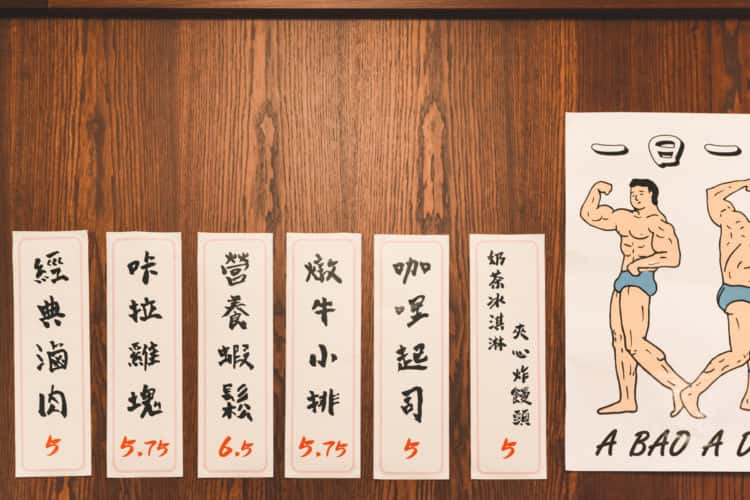 經典滷肉
5
咔拉雞塊
5.75
營養蝦鬆
6.5
燉牛小排
5.75
咖哩起司
5
奶茶冰淇淋
夾心炸饅頭
5
一日一
A BAO A D